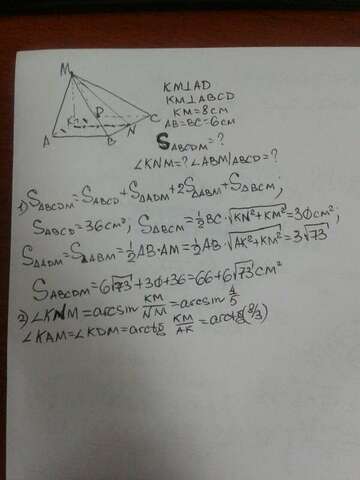 M
K
D
C
N
A
B
KM⊥AD
KM⊥ABCD
KM=8см
AB=BC=6см
S_ABCDM=?
∠KNM=? ∠ABM/ABCD=?
1) S_ABCDM=S_ABCD+S_ΔADM+2S_ΔABM+S_ΔBCM;
S_ABCD=36см²; S_ΔBCM=½BC·√KN²+KM²=30см²;
S_ΔADM=S_ΔABM=½AB·AM=½AB·√AK²+KM²=3√73
S_ABCDM=6√73+30+36=66+6√73см²
2) ∠KNM=arcsin KM/NM=arcsin 4/5
∠KAM=∠KDM=arctg KM/AK=arctg(8/3)